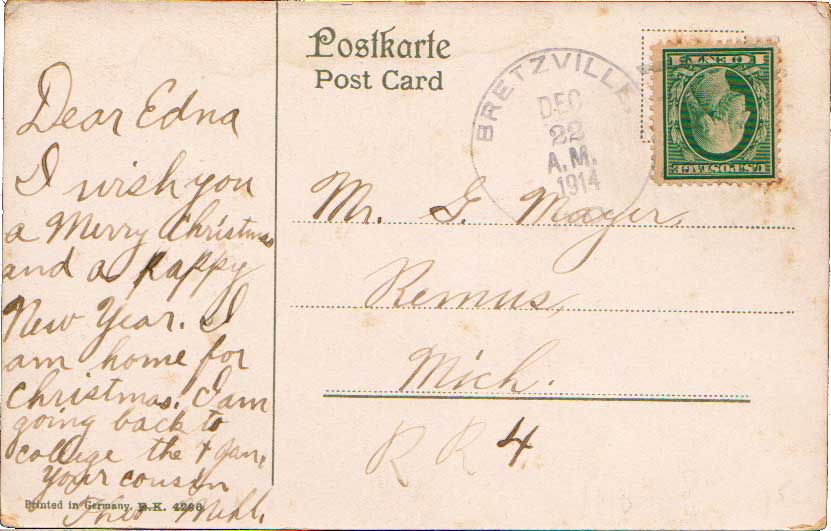 Postkarte
Post Card
BRETZVILLE
DEC
22
A.M.
1914
1 CENT 1
U.S. POSTAGE
Dear Edna
I wish you
a Merry Christmas
and a happy
New Year. I
am home for
christmas. I am
going back to
college the 4 Jan.
Your cousin
Theo
Printed in Germany. B.K. 4290
Mr. G. Mayer,
Remus,
Mich.
R R 4